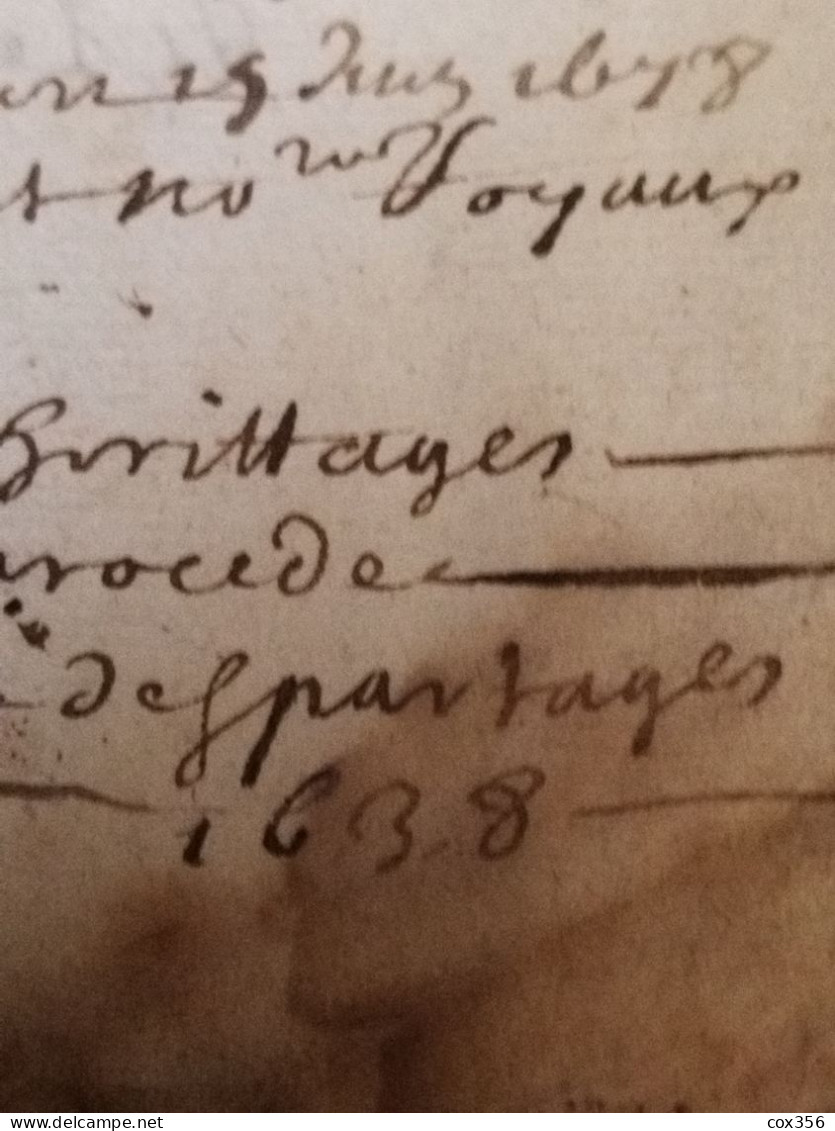 19 1678
Royaux
herittages
procede
des partages
1638
delcampe.net
cox356